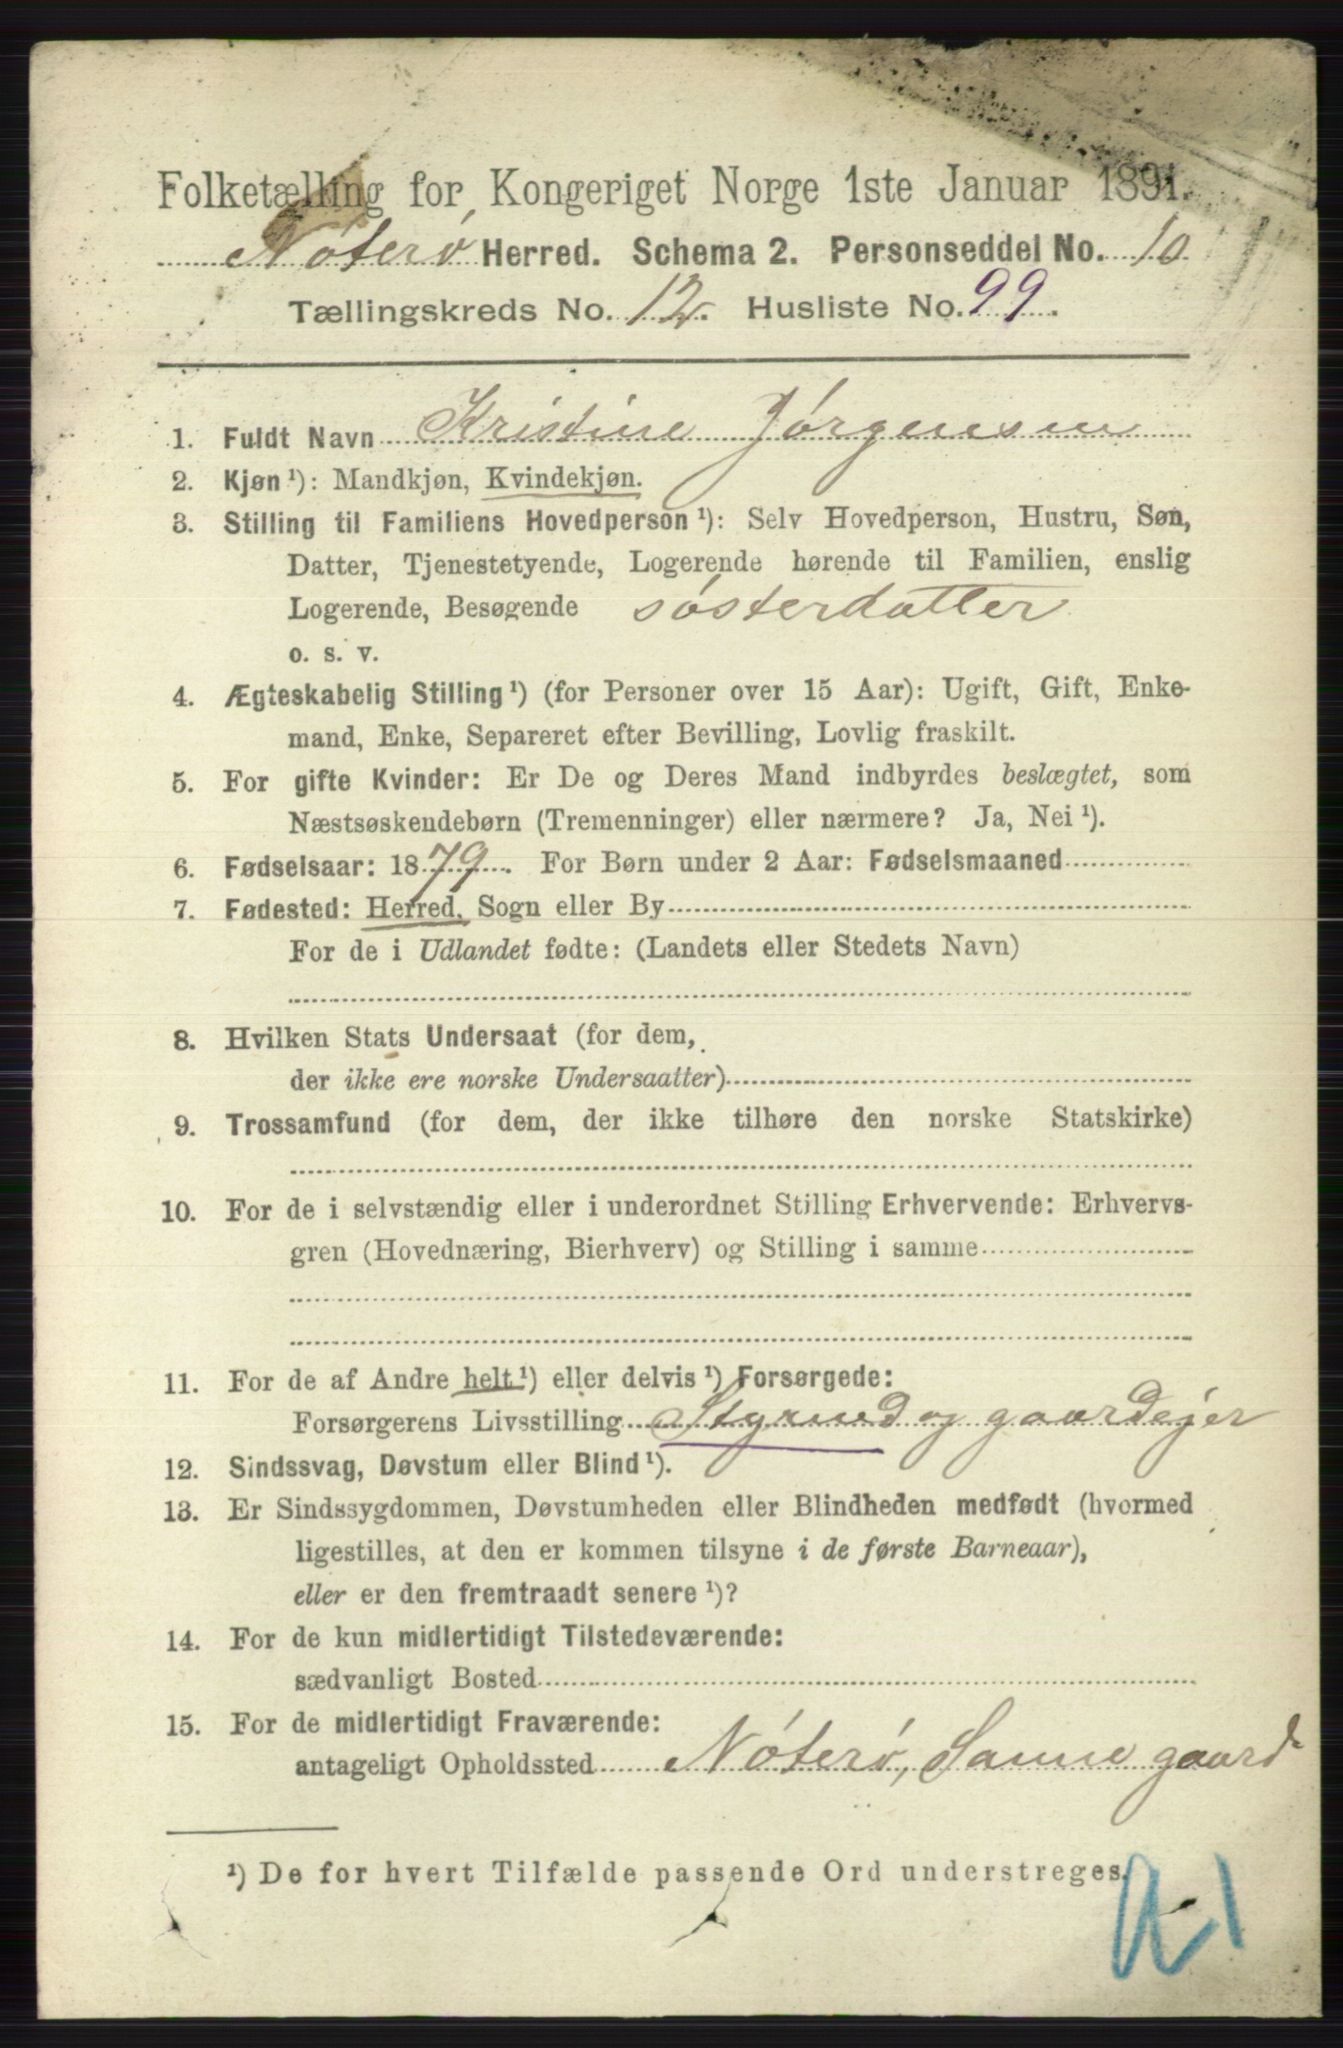 Folketælling for Kongeriget Norge 1ste Januar 1891.
Nøterø Herred. Schema 2. Personseddel No. 10
Tællingskreds No. 12. Husliste No. 99.
1. Fuldt Navn Kristine Jørgensen
2. Kjøn ¹): Mandkjøn, Kvindekjøn.
3. Stilling til Familiens Hovedperson ¹): Selv Hovedperson, Hustru, Søn,
Datter, Tjenestetyende, Logerende hørende til Familien, enslig
Logerende, Besøgende søsterdatter
o. s. v.
4. Ægteskabelig Stilling ¹) (for Personer over 15 Aar): Ugift, Gift, Enke-
mand, Enke, Separeret efter Bevilling, Lovlig fraskilt.
5. For gifte Kvinder: Er De og Deres Mand indbyrdes beslægtet, som
Næstsøskendebørn (Tremenninger) eller nærmere? Ja, Nei ¹).
6. Fødselsaar: 1879. For Børn under 2 Aar: Fødselsmaaned
7. Fødested: Herred, Sogn eller By
For de i Udlandet fødte: (Landets eller Stedets Navn)
8. Hvilken Stats Undersaat (for dem,
der ikke ere norske Undersaatter)
9. Trossamfund (for dem, der ikke tilhøre den norske Statskirke)
10. For de i selvstændig eller i underordnet Stilling Erhvervende: Erhvervs-
gren (Hovednæring, Bierhverv) og Stilling i samme
11. For de af Andre helt ¹) eller delvis ¹) Forsørgede:
Forsørgerens Livsstilling Styrmd og gaardejer
12. Sindssvag, Døvstum eller Blind ¹).
13. Er Sindssygdommen, Døvstumheden eller Blindheden medfødt (hvormed
ligestilles, at den er kommen tilsyne i de første Barneaar),
eller er den fremtraadt senere ¹)?
14. For de kun midlertidigt Tilstedeværende:
sædvanligt Bosted
15. For de midlertidigt Fraværende:
antageligt Opholdssted Nøterø, Samme gaard
¹) De for hvert Tilfælde passende Ord understreges.